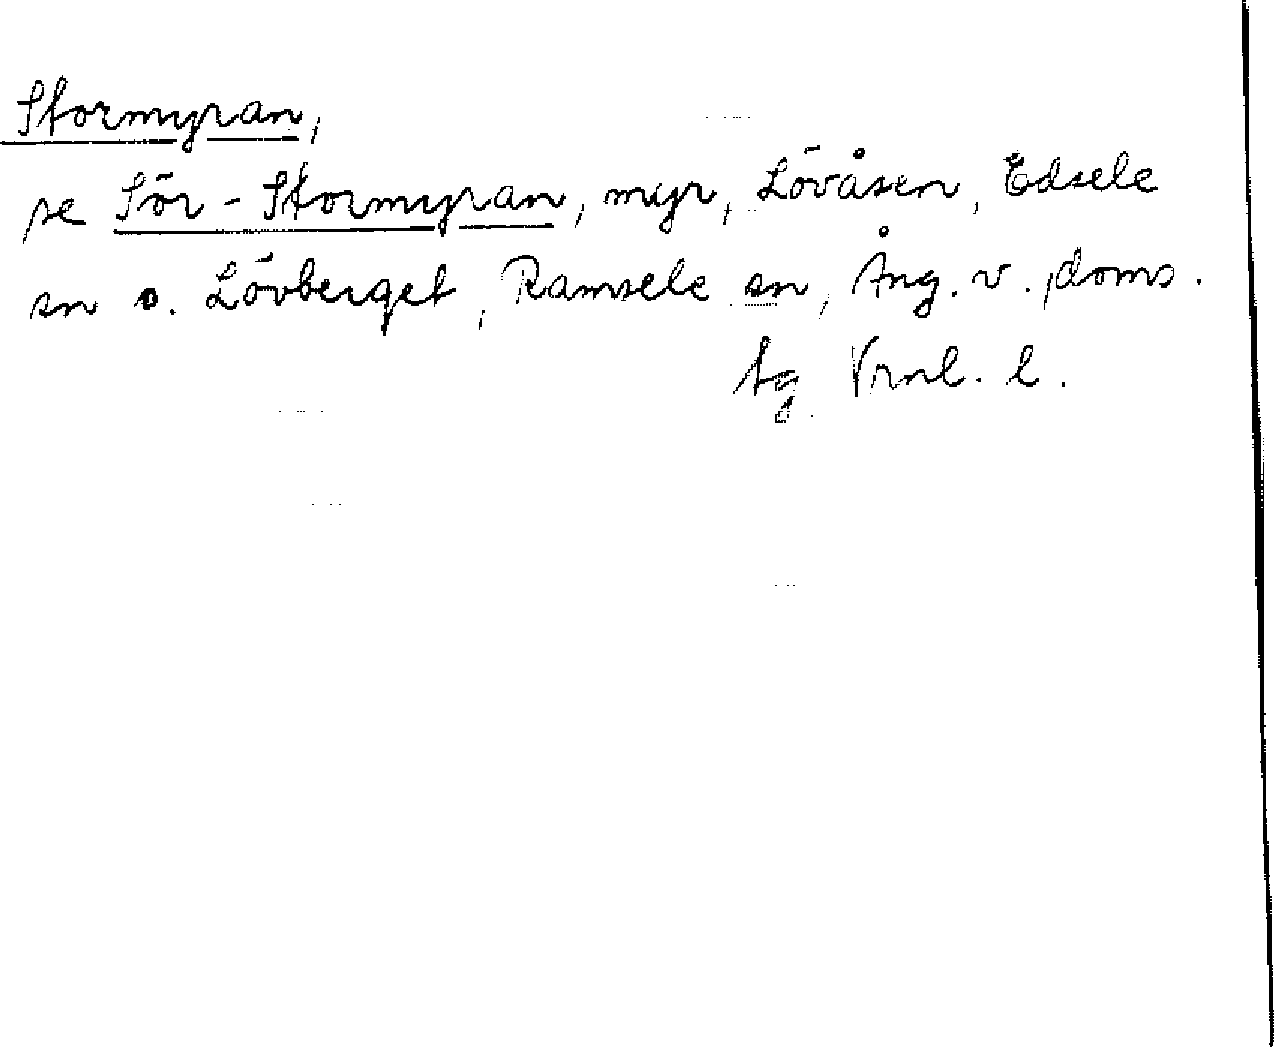 Stormyran,
se Sör-Stormyran, myr, Lövåsen, Edsele
sn o. Lövberget, Ramsele sn, Ång. v. doms.
tg Vrnl. l.